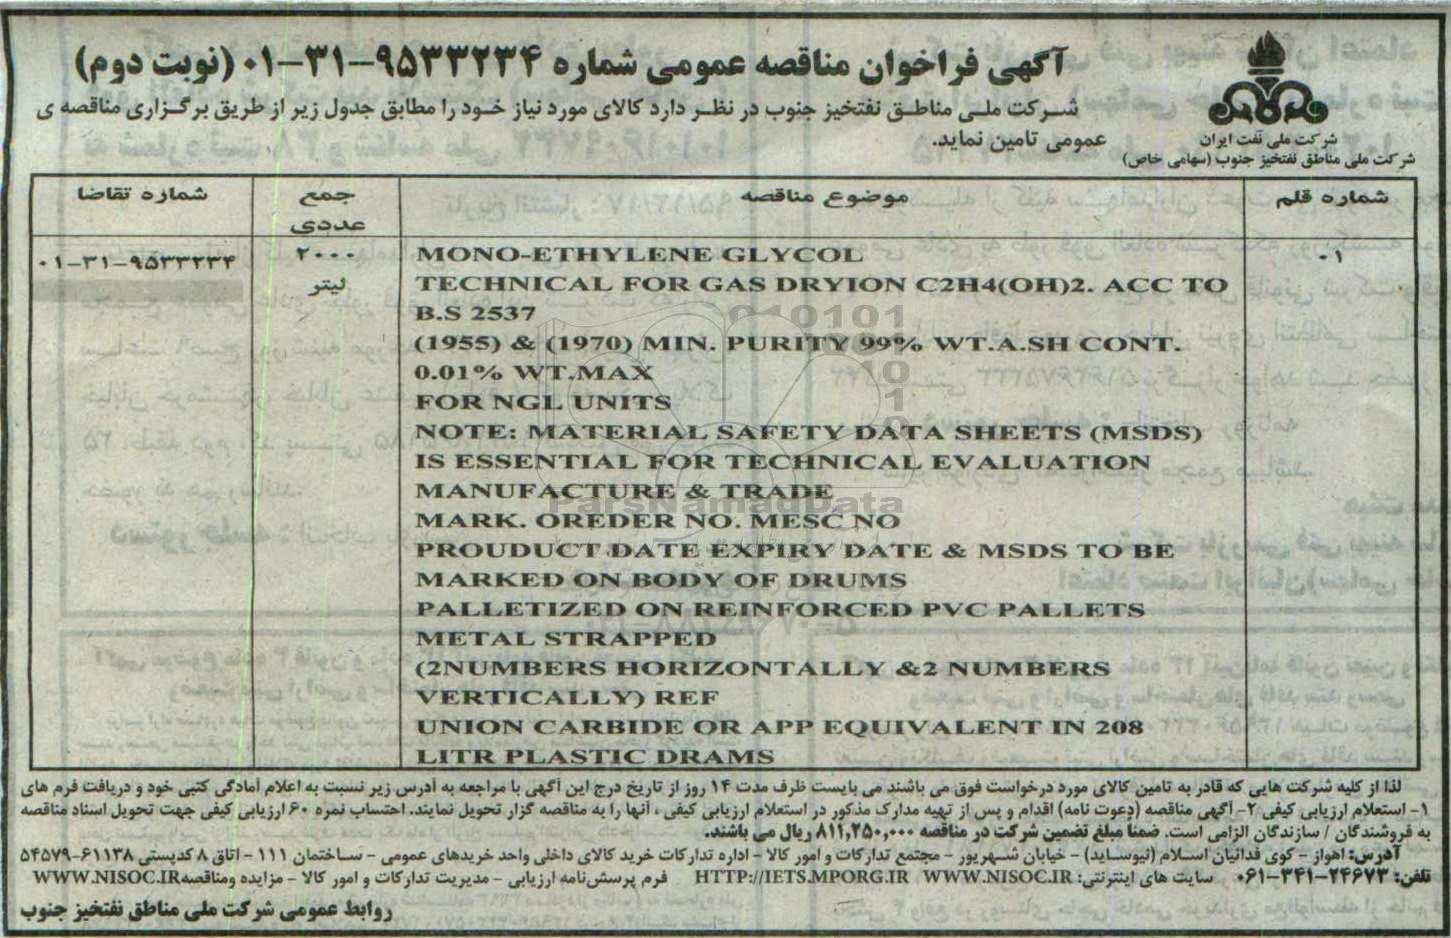 آگهی فراخوان مناقصه عمومی شماره ۹۵۳۳۲۳۴-۳۱-۰۱ (نوبت دوم)
شرکت ملی مناطق نفتخیز جنوب در نظر دارد کالای مورد نیاز خود را مطابق جدول زیر از طریق برگزاری مناقصه ی
عمومی تامین نماید.
شرکت ملی نفت ایران
شرکت ملی مناطق نفتخیز جنوب (سهامی خاص)
شماره قلم
موضوع مناقصه
جمع عددی
شماره تقاضا
۰۱
MONO-ETHYLENE GLYCOL
TECHNICAL FOR GAS DRYION C2H4(OH)2. ACC TO
B.S 2537
(1955) & (1970) MIN. PURITY 99% WT.A.SH CONT.
0.01% WT.MAX
FOR NGL UNITS
NOTE: MATERIAL SAFETY DATA SHEETS (MSDS)
IS ESSENTIAL FOR TECHNICAL EVALUATION
MANUFACTURE & TRADE
MARK. OREDER NO. MESC NO
PROUDUCT DATE EXPIRY DATE & MSDS TO BE
MARKED ON BODY OF DRUMS
PALLETIZED ON REINFORCED PVC PALLETS
METAL STRAPPED
(2NUMBERS HORIZONTALLY &2 NUMBERS
VERTICALLY) REF
UNION CARBIDE OR APP EQUIVALENT IN 208
LITR PLASTIC DRAMS
۲۰۰۰
لیتر
۰۱-۳۱-۹۵۳۳۲۳۴
ParsNamadData
لذا از کلیه شرکت هایی که قادر به تامین کالای مورد درخواست فوق می باشند می بایست ظرف مدت ۱۴ روز از تاریخ درج این آگهی با مراجعه به آدرس زیر نسبت به اعلام آمادگی کتبی خود و دریافت فرم های
۱- استعلام ارزیابی کیفی ۲- آگهی مناقصه (دعوت نامه) اقدام و پس از تهیه مدارک مذکور در استعلام ارزیابی کیفی ، آنها را به مناقصه گزار تحویل نمایند. احتساب نمره ۶۰ ارزیابی کیفی جهت تحویل اسناد مناقصه
به فروشندگان / سازندگان الزامی است. ضمنا مبلغ تضمین شرکت در مناقصه ۸۱۱,۲۵۰,۰۰۰ ریال می باشند.
آدرس: اهواز - کوی فدائیان اسلام (نیوساید) - خیابان شهریور - مجتمع تدارکات و امور کالا - اداره تدارکات خرید کالای داخلی واحد خریدهای عمومی - ساختمان ۱۱۱ - اتاق ۸ کدپستی ۶۱۱۳۸-۵۴۵۷۹
تلفن: ۲۴۶۷۳-۳۴۱-۰۶۱ سایت های اینترنتی: HTTP://IETS.MPORG.IR WWW.NISOC.IR فرم پرسش نامه ارزیابی - مدیریت تدارکات و امور کالا - مزایده ومناقصه WWW.NISOC.IR
روابط عمومی شرکت ملی مناطق نفتخیز جنوب